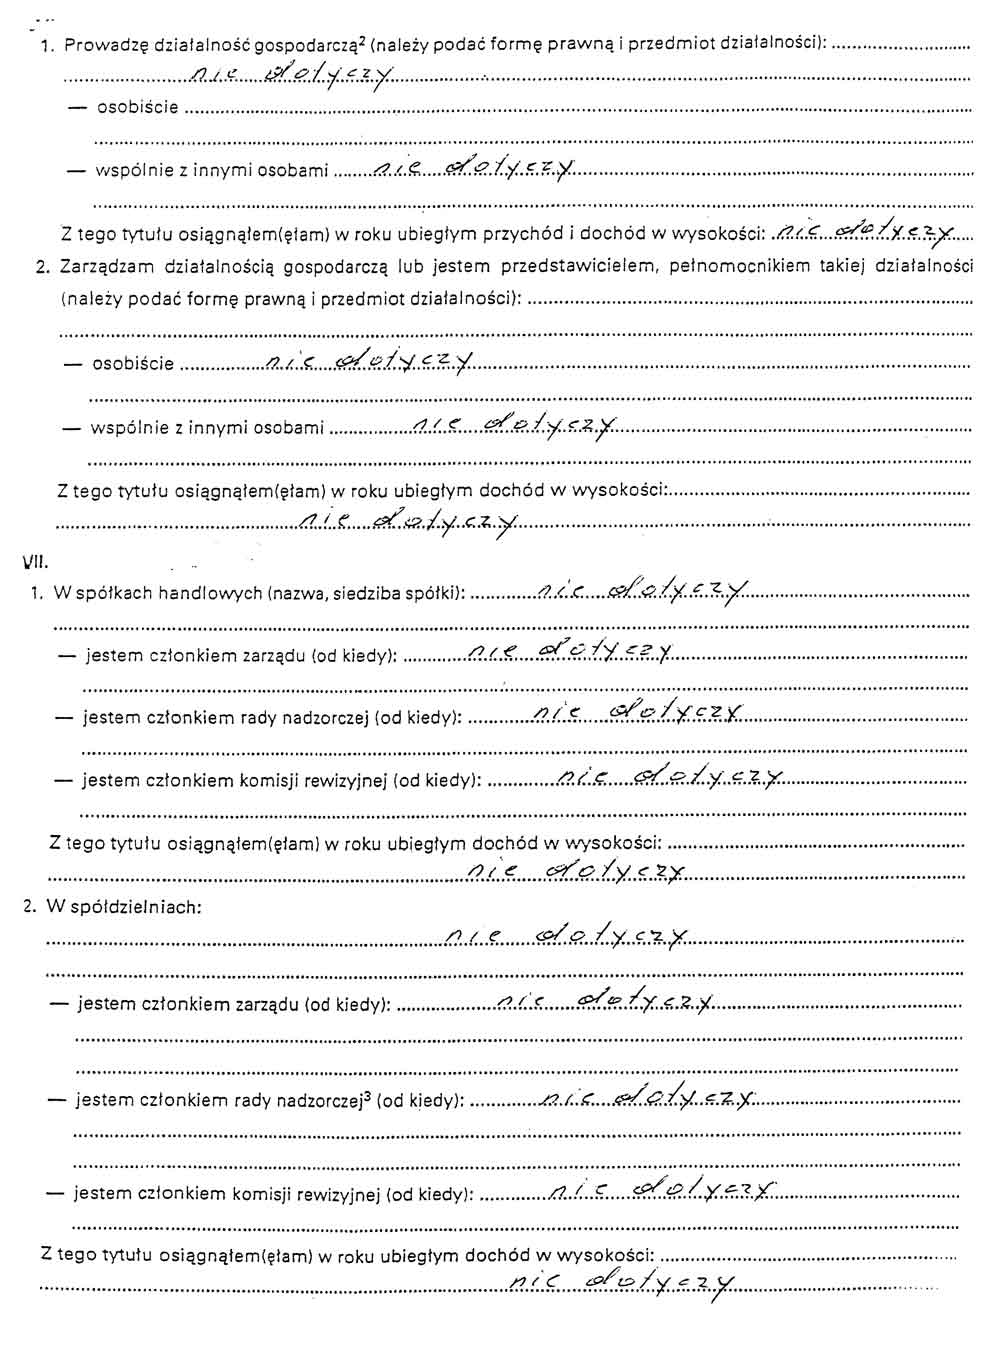 1. Prowadzę działalność gospodarczą² (należy podać formę prawną i przedmiot działalności):
nie dotyczy
— osobiście
— wspólnie z innymi osobami nie dotyczy
Z tego tytułu osiągnąłem(ęłam) w roku ubiegłym przychód i dochód w wysokości: nie dotyczy
2. Zarządzam działalnością gospodarczą lub jestem przedstawicielem, pełnomocnikiem takiej działalności
(należy podać formę prawną i przedmiot działalności):
— osobiście nie dotyczy
— wspólnie z innymi osobami nie dotyczy
Z tego tytułu osiągnąłem(ęłam) w roku ubiegłym dochód w wysokości:
nie dotyczy
VII.
1. W spółkach handlowych (nazwa, siedziba spółki): nie dotyczy
— jestem członkiem zarządu (od kiedy): nie dotyczy
— jestem członkiem rady nadzorczej (od kiedy): nie dotyczy
— jestem członkiem komisji rewizyjnej (od kiedy): nie dotyczy
Z tego tytułu osiągnąłem(ęłam) w roku ubiegłym dochód w wysokości:
nie dotyczy
2. W spółdzielniach:
nie dotyczy
— jestem członkiem zarządu (od kiedy): nie dotyczy
— jestem członkiem rady nadzorczej³ (od kiedy): nie dotyczy
— jestem członkiem komisji rewizyjnej (od kiedy): nie dotyczy
Z tego tytułu osiągnąłem(ęłam) w roku ubiegłym dochód w wysokości:
nie dotyczy